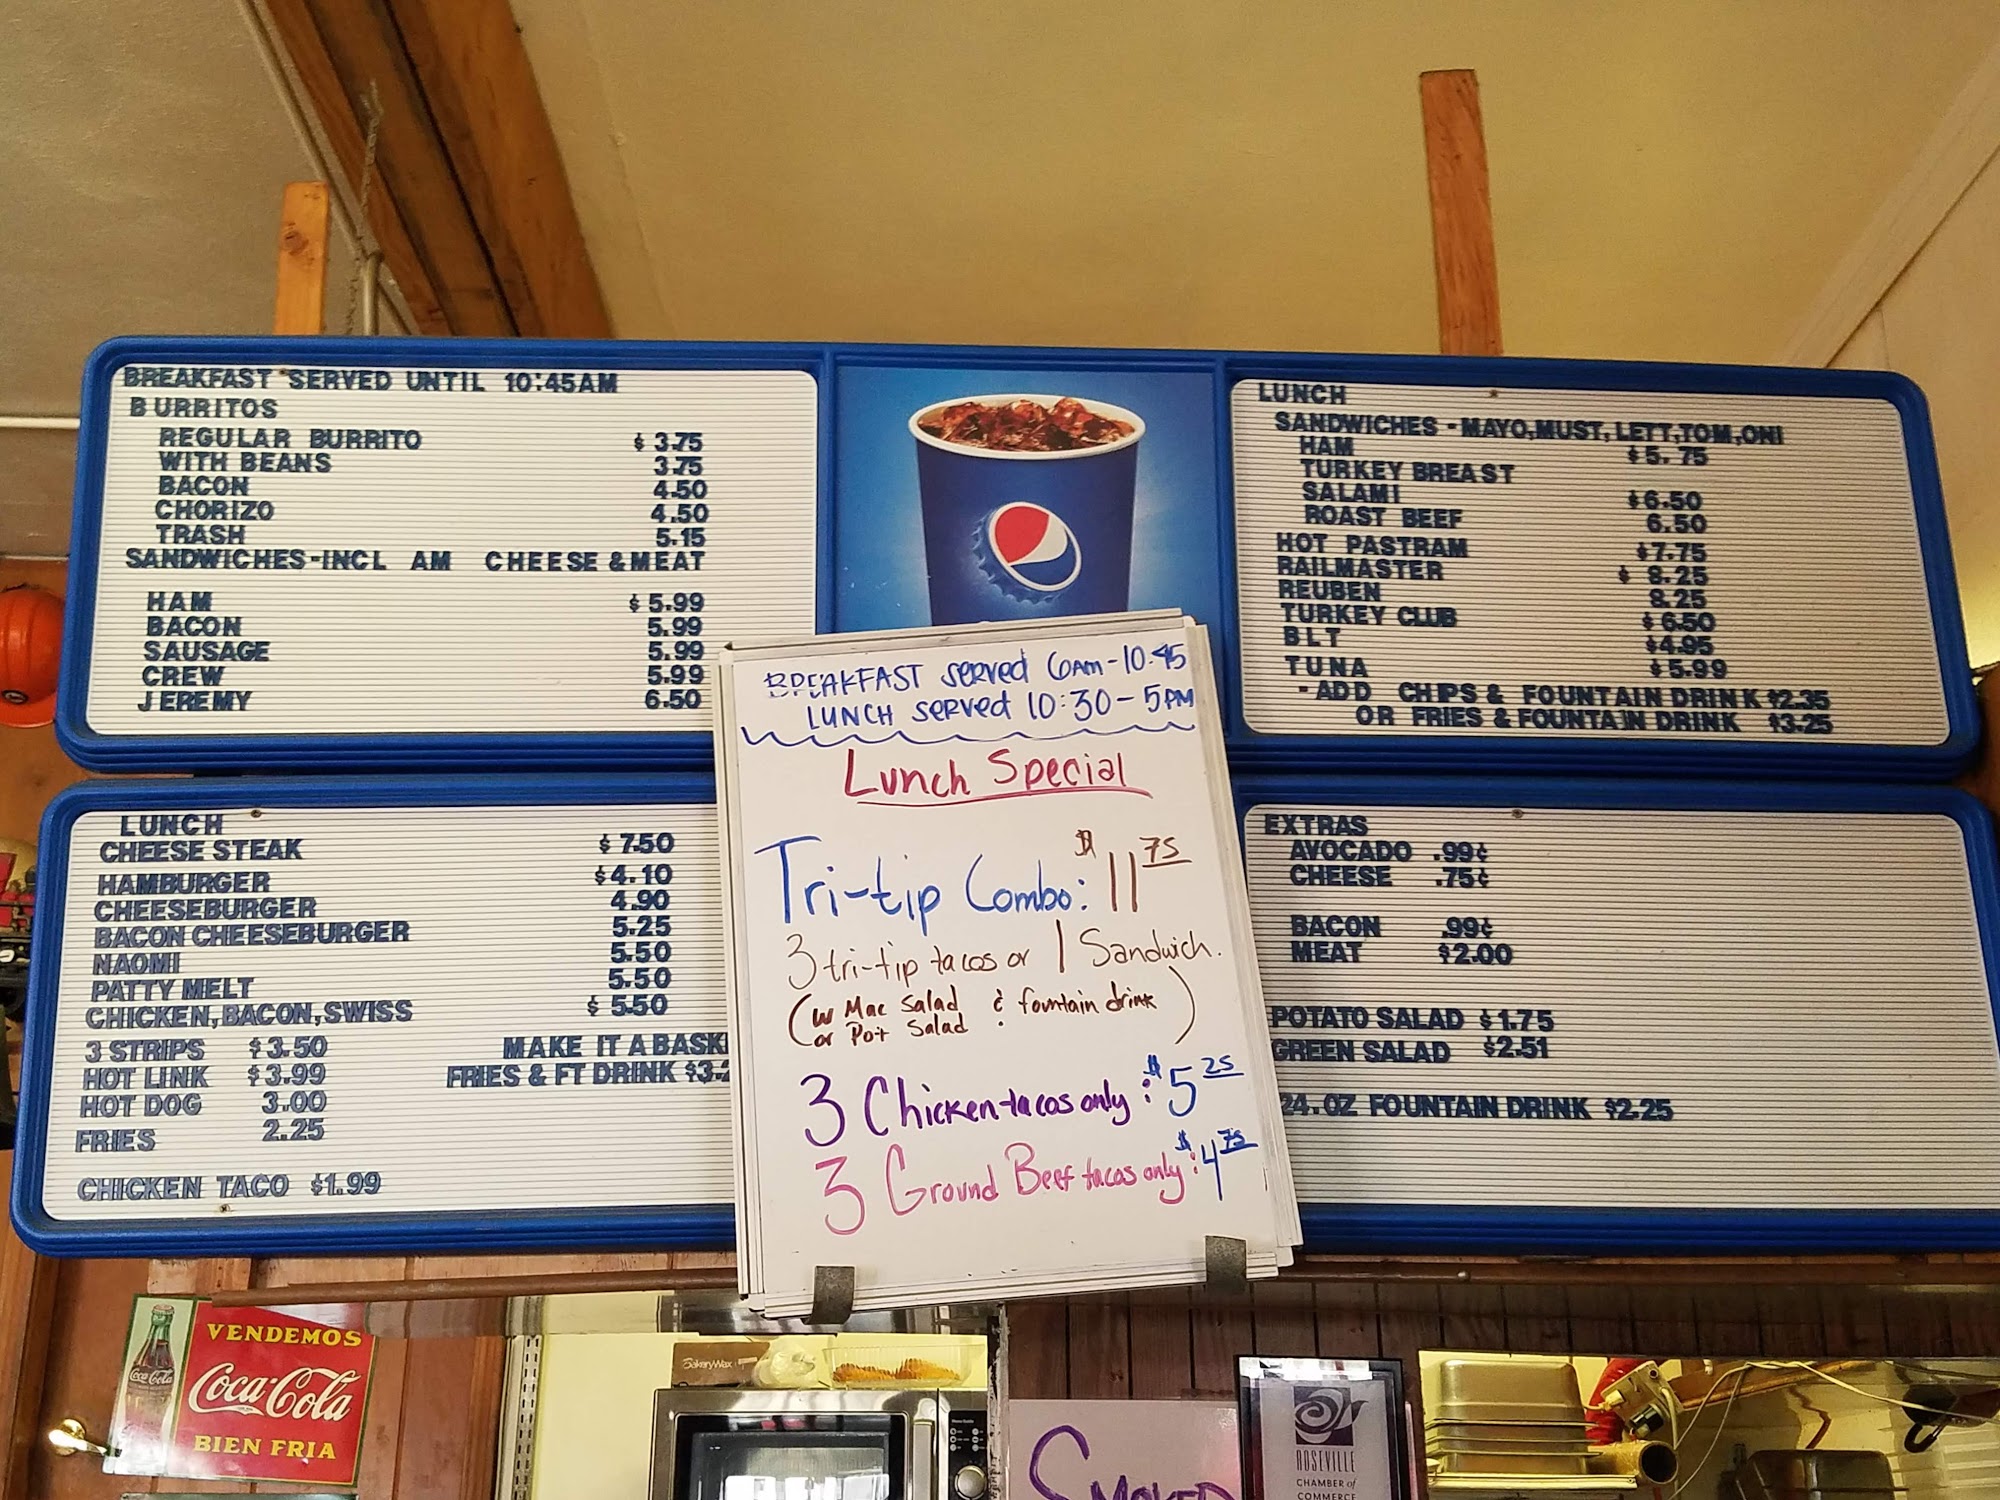 BREAKFAST SERVED UNTIL 10:45AM
BURRITOS
REGULAR BURRITO $ 3.75
WITH BEANS 3.75
BACON 4.50
CHORIZO 4.50
TRASH 5.15
SANDWICHES-INCL AM CHEESE & MEAT
HAM $ 5.99
BACON 5.99
SAUSAGE 5.99
CREW 5.99
JEREMY 6.50
LUNCH
SANDWICHES - MAYO,MUST, LETT,TOM,ONI
HAM $5.75
TURKEY BREAST
SALAMI $6.50
ROAST BEEF 6.50
HOT PASTRAM $7.75
RAILMASTER $ 8.25
REUBEN 8.25
TURKEY CLUB $6.50
BLT $4.95
TUNA $5.99
-ADD CHIPS & FOUNTAIN DRINK $2.35
OR FRIES & FOUNTAIN DRINK $3.25
LUNCH
CHEESE STEAK $ 7.50
HAMBURGER $4.10
CHEESEBURGER 4.90
BACON CHEESEBURGER 5.25
NAOMI 5.50
PATTY MELT 5.50
CHICKEN, BACON, SWISS $ 5.50
3 STRIPS $3.50 MAKE IT A BASK
HOT LINK $3.99 FRIES & FT DRINK $3.
HOT DOG 3.00
FRIES 2.25
CHICKEN TACO $1.99
BREAKFAST served 6AM-10:45
LUNCH served 10:30-5PM
Lunch Special
Tri-tip Combo: $11 75
3 tri-tip tacos or 1 Sandwich.
(w Mac Salad & fountain drink
or Pot Salad )
3 Chicken tacos only: $5 25
3 Ground Beef tacos only: $4 75
EXTRAS
AVOCADO .99¢
CHEESE .75¢
BACON .99¢
MEAT $2.00
POTATO SALAD $1.75
GREEN SALAD $2.51
24.OZ FOUNTAIN DRINK $2.25
VENDEMOS
Coca-Cola
Coca-Cola
BIEN FRIA
BakeryWax
SMOKED
ROSEVILLE
CHAMBER of
COMMERCE